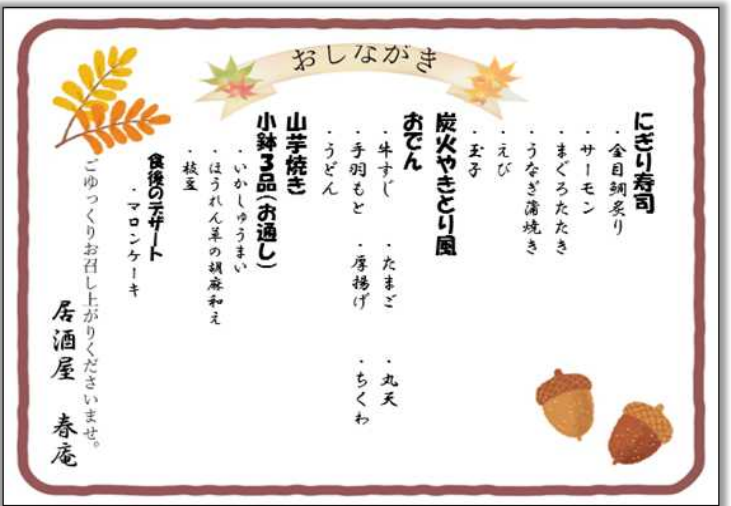 おしながき
にぎり寿司
・金目鯛炙り
・サーモン
・まぐろたたき
・うなぎ蒲焼き
・えび
・玉子
炭火やきとり風
おでん
・牛すじ ・たまご ・丸天
・手羽もと ・厚揚げ ・ちくわ
・うどん
山芋焼き
小鉢3品(お通し)
・いかしゅうまい
・ほうれん草の胡麻和え
・枝豆
食後のデザート
・マロンケーキ
ごゆっくりお召し上がりくださいませ。
居酒屋 春庵